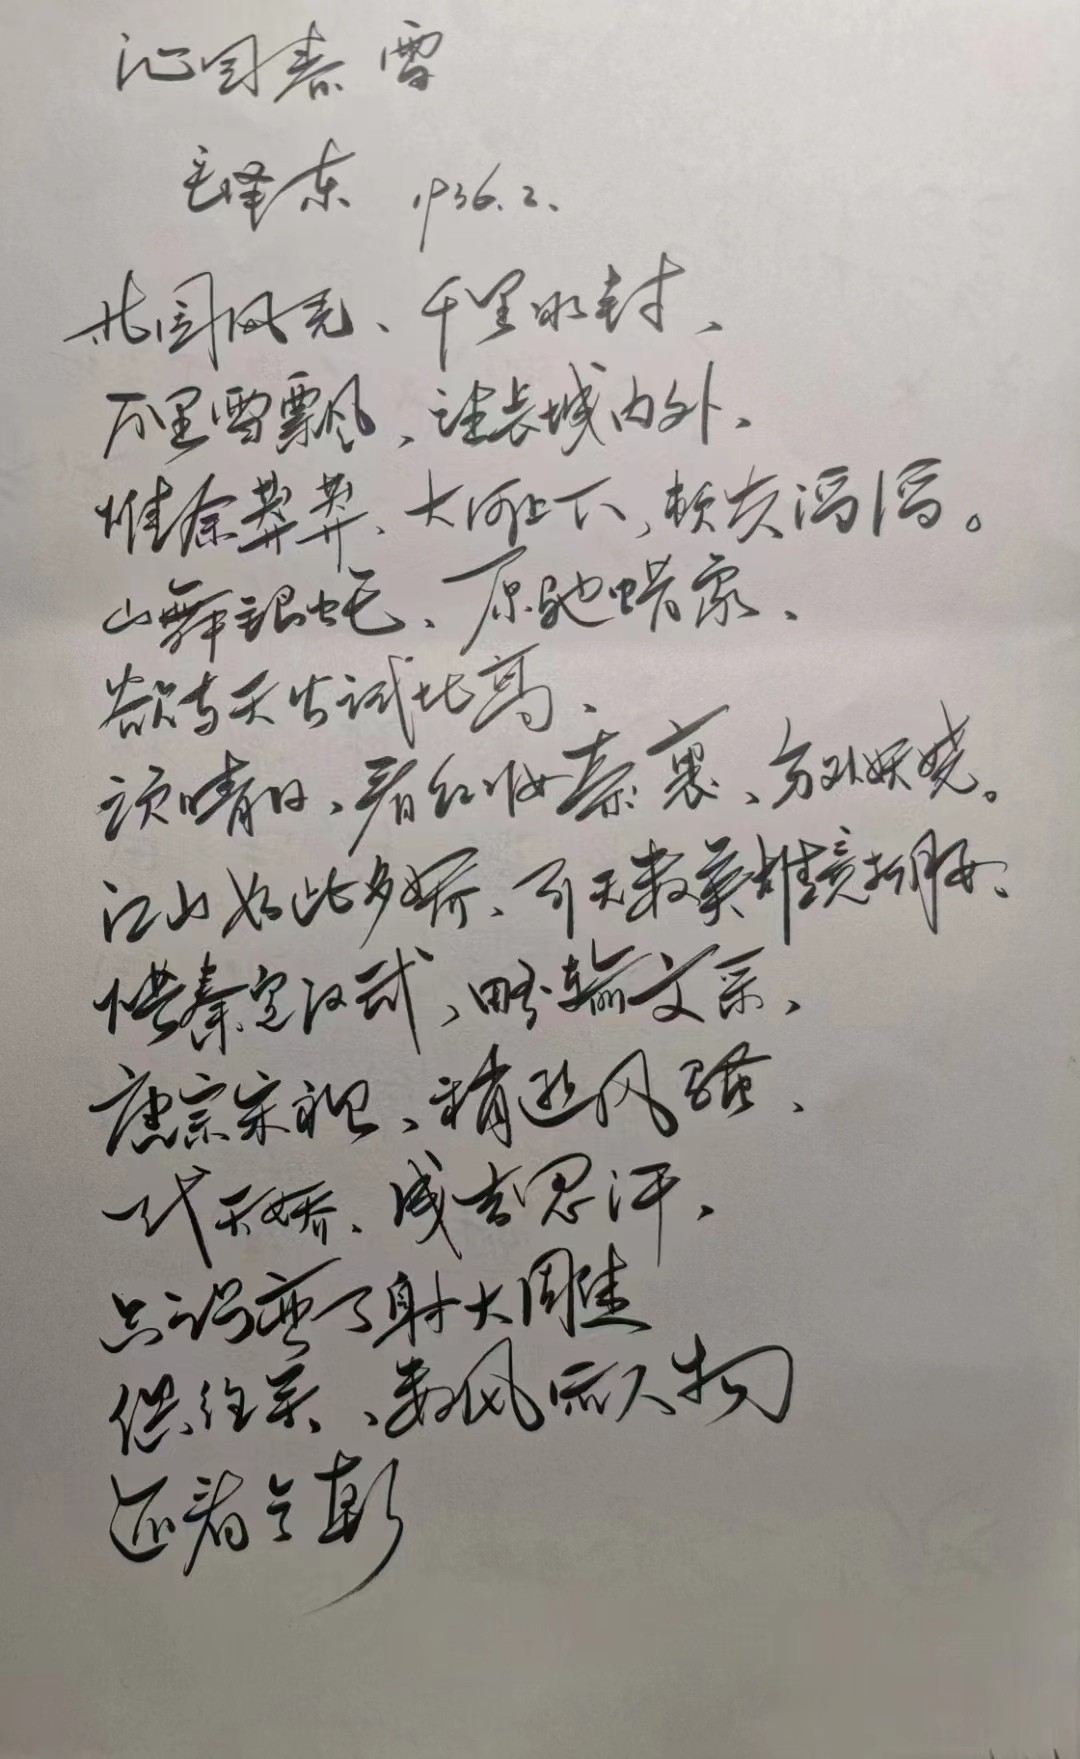 沁园春 雪
毛泽东 1936.2、
北国风光、千里冰封、
万里雪飘、望长城内外、
惟余莽莽、大河上下,顿失滔滔。
山舞银蛇、原驰蜡象、
欲与天公试比高、
须晴日、看红妆素裹、分外妖娆。
江山如此多娇、引无数英雄竞折腰、
惜秦皇汉武、略输文采、
唐宗宋祖、稍逊风骚、
一代天骄、成吉思汗、
只识弯弓射大雕
俱往矣、数风流人物
还看今朝